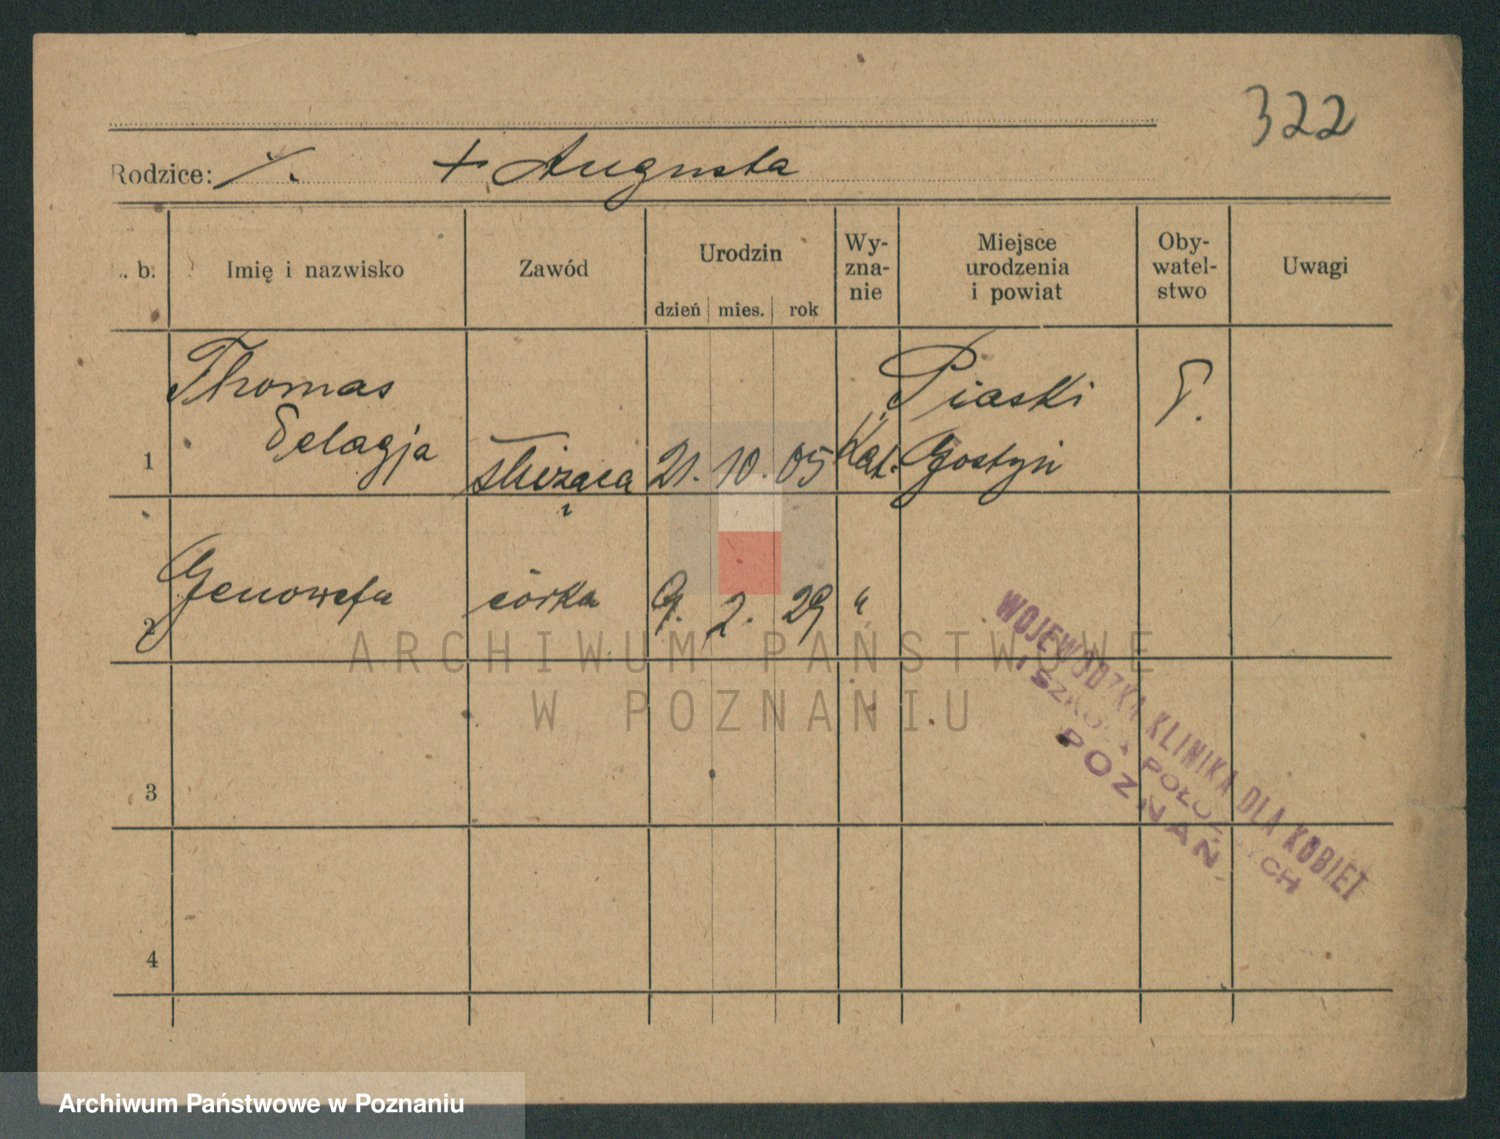 322
Rodzice: ·/. + Augusta
L. b.
Imię i nazwisko
Zawód
Urodzin
dzień mies. rok
Wy-
zna-
nie
Miejsce
urodzenia
i powiat
Oby-
watel-
stwo
Uwagi
Thomas
Pelagja
1 służąca 21. 10. 05 Kat.
Piaski
Gostyń
P.
2 Genowefa córka 9. 2. 29 "
3
4
WOJEWÓDZKA KLINIKA DLA KOBIET
I SZKOŁA POŁOŻNYCH
POZNAŃ
ARCHIWUM PAŃSTWOWE
W POZNANIU
Archiwum Państwowe w Poznaniu